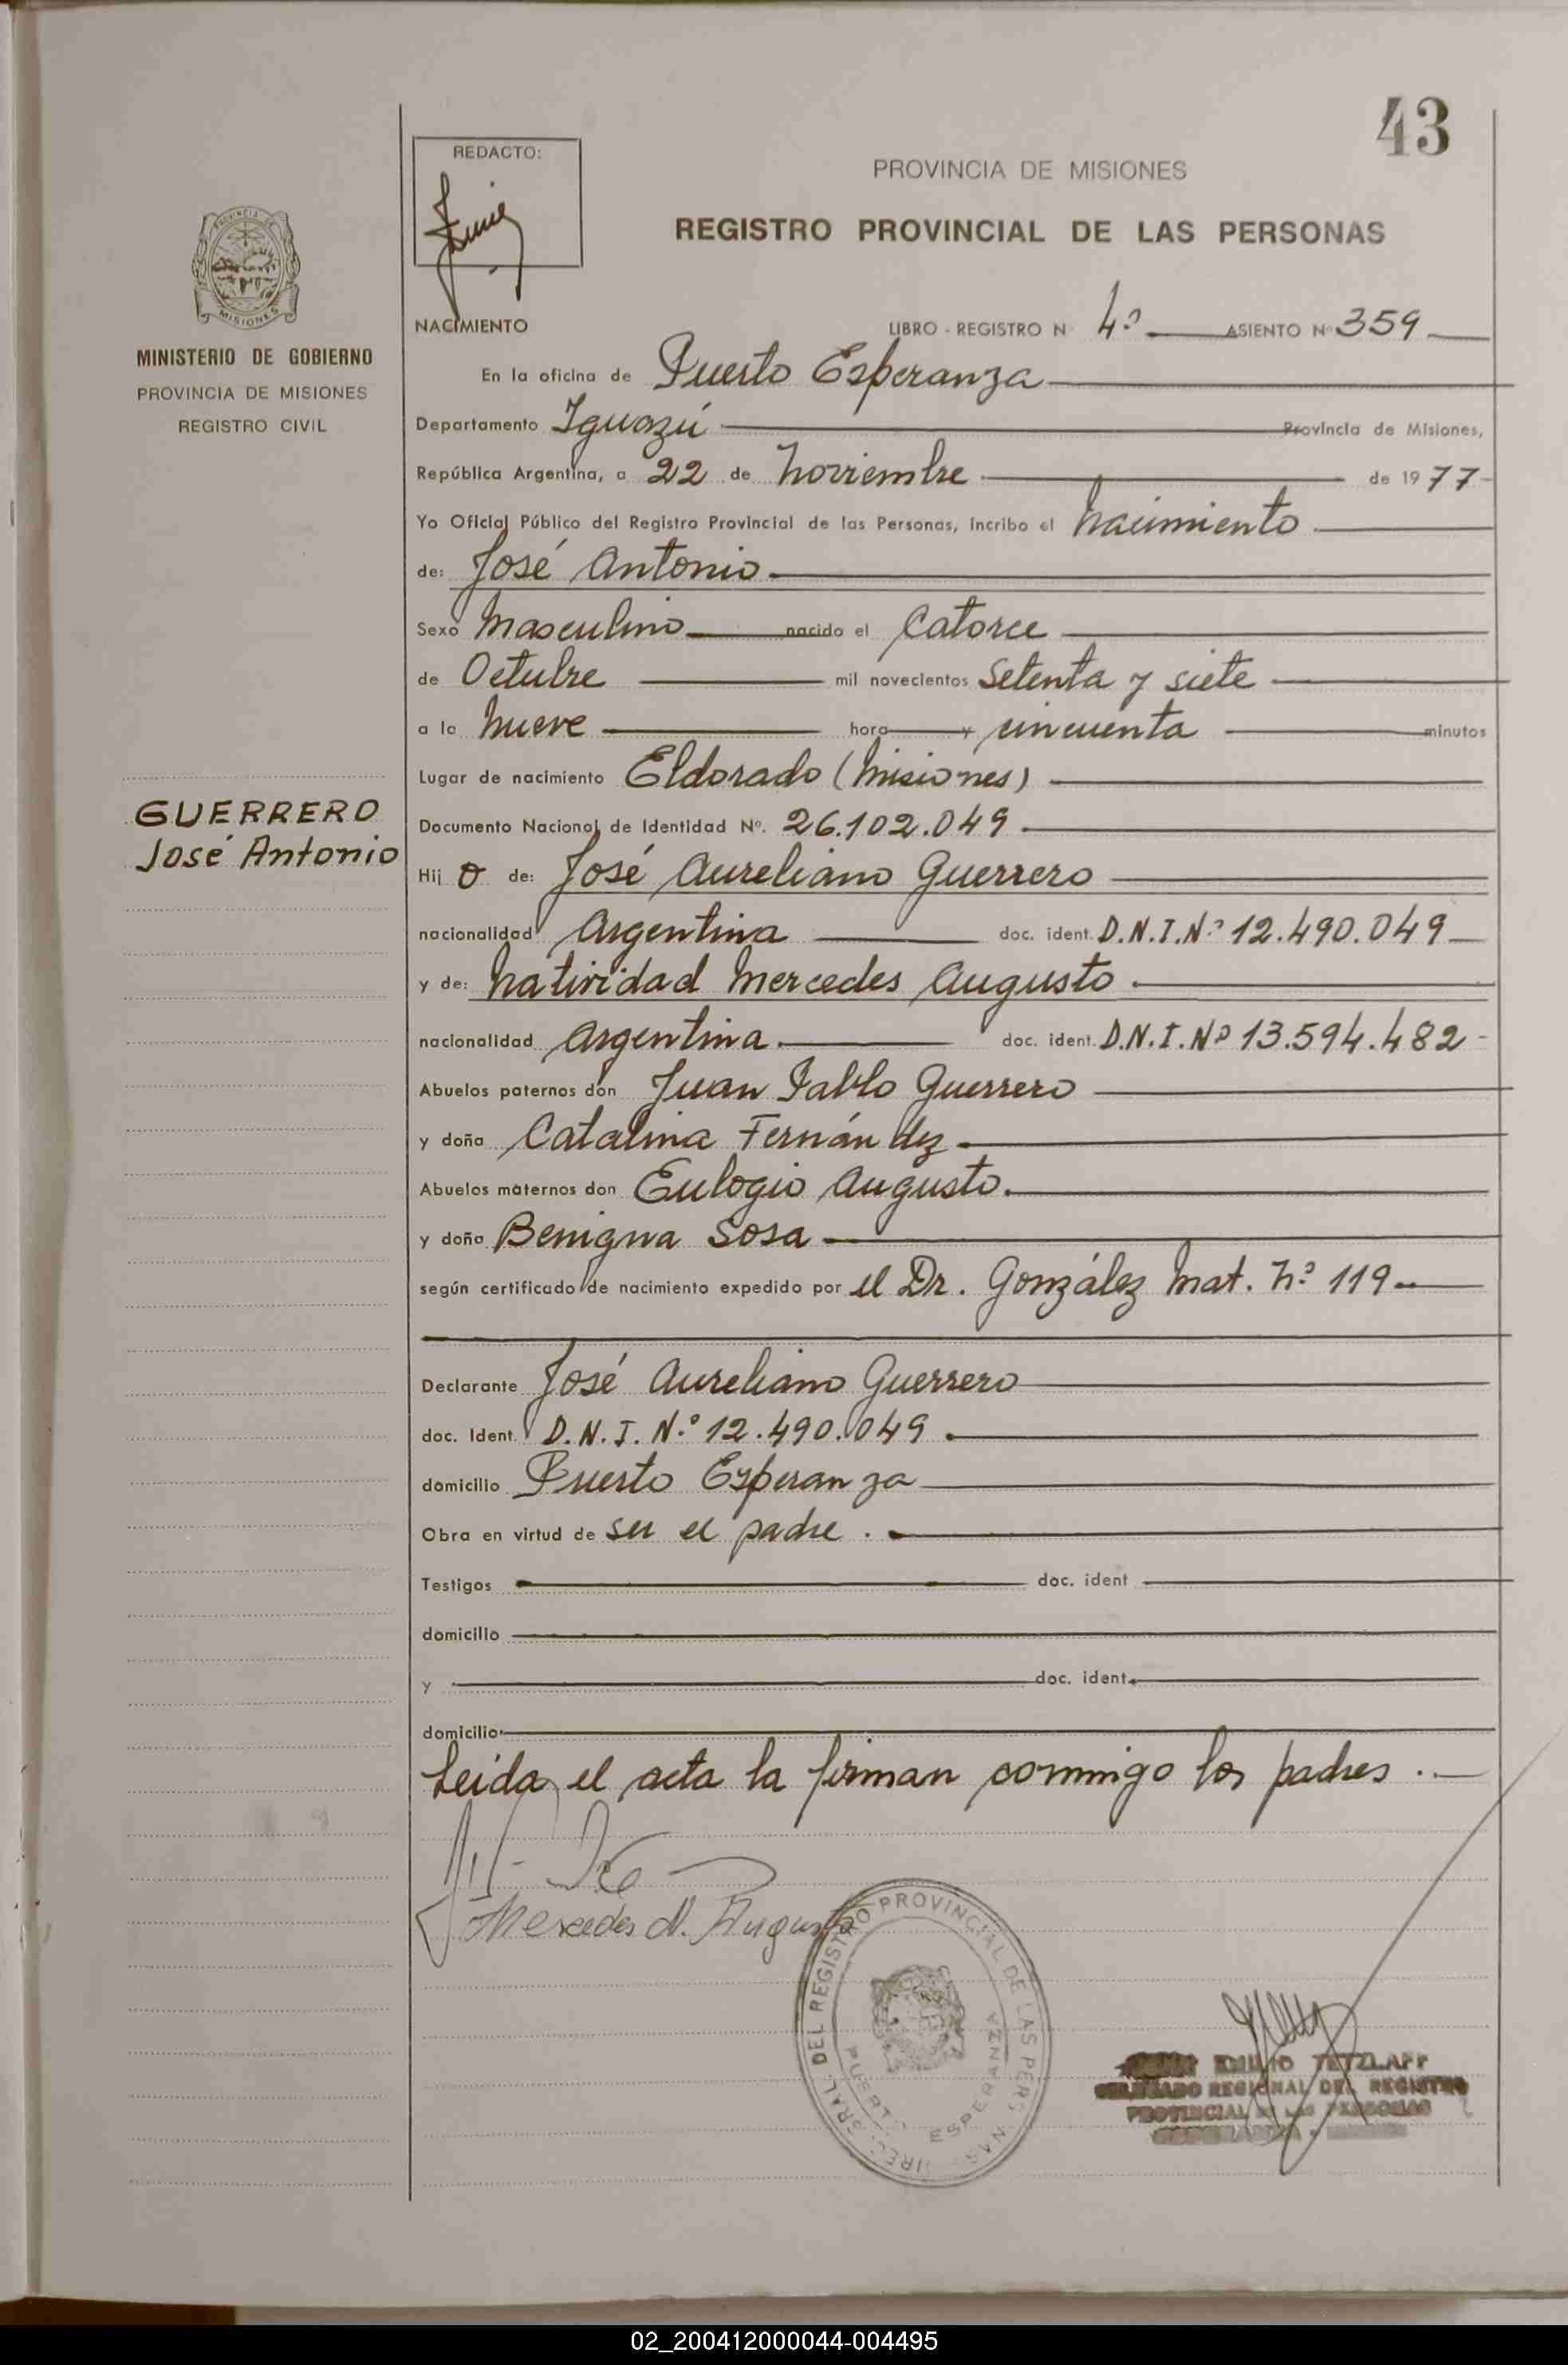 43
REDACTO:
PROVINCIA DE MISIONES
REGISTRO PROVINCIAL DE LAS PERSONAS
PROVINCIA DE
MISIONES
MINISTERIO DE GOBIERNO
PROVINCIA DE MISIONES
REGISTRO CIVIL
NACIMIENTO LIBRO - REGISTRO N 4º ASIENTO Nº 359
En la oficina de Puerto Esperanza
Departamento Iguazú Provincia de Misiones,
República Argentina, a 22 de Noviembre de 1977
Yo Oficial Público del Registro Provincial de las Personas, incribo el Nacimiento
de: José Antonio
Sexo Masculino nacido el Catorce
de Octubre mil novecientos Setenta y siete
a la Nueve hora y cincuenta minutos
Lugar de nacimiento Eldorado (Misiones)
GUERRERO
José Antonio
Documento Nacional de Identidad Nº. 26.102.049
Hij o de: José Aureliano Guerrero
nacionalidad Argentina doc. ident. D.N.I.Nº 12.490.049
y de: Natividad Mercedes Augusto
nacionalidad Argentina doc. ident. D.N.I.Nº 13.594.482
Abuelos paternos don Juan Pablo Guerrero
y doña Catalina Fernández
Abuelos maternos don Eulogio Augusto.
y doña Benigna Sosa
según certificado de nacimiento expedido por el Dr. González Mat. Nº 119
Declarante José Aureliano Guerrero
doc. Ident. D.N.I. N.º 12.490.049
domicilio Puerto Esperanza
Obra en virtud de ser el padre.
Testigos doc. ident
domicilio
y doc. ident.
domicilio
Leída el acta la firman conmigo los padres.
Mercedes N. Augusto
GRAL. DEL REGISTRO PROVINCIAL DE LAS PERSONAS
PUERTO ESPERANZA
EMILIO TETZLAFF
DELEGADO REGIONAL DEL REGISTRO
PROVINCIAL DE LAS PERSONAS
02_200412000044-004495